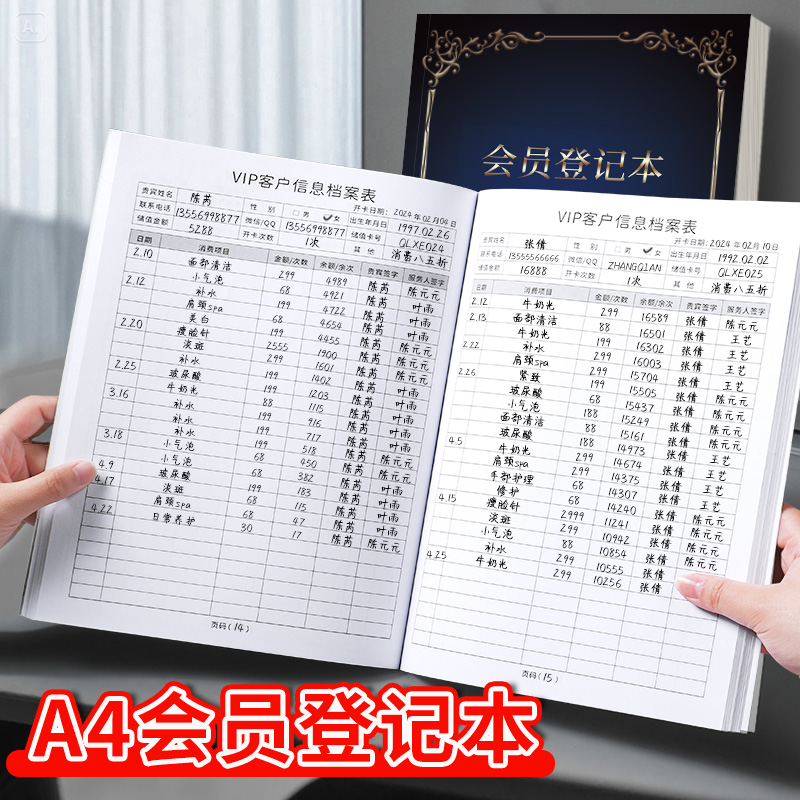 会员登记本
VIP客户信息档案表
开卡日期: 2024年02月04日
贵宾姓名 陈芮 性 别 □男 ✓女 出生年月日 1997.02.26
联系电话 13556998877 微信/QQ 13556998877 储值卡号 QLXE024
储值金额 5288 开卡次数 1次 其 他 消费八五折
日期 消费项目 金额/次数 余额/余次 贵宾签字 服务人签字
2.10 面部清洁 299 4989 陈芮 陈元元
小气泡 68 4921 陈芮
2.12 补水 199 4722 陈芮
肩颈spa 68 4654 陈芮
美白 199 4455 陈芮
2.20 瘦脸针 2555 1900 陈芮
淡斑 299 1601 陈芮
补水 199 1402 陈芮
2.25 玻尿酸 199 1203 陈芮
牛奶光 88 1115 陈芮
3.16 补水 199 916 陈芮
补水 199 717 陈芮
3.18 小气泡 518 陈芮
小气泡 68 450 陈芮
4.9 玻尿酸 68 382 陈芮
4.17 淡斑 199 183 陈芮
肩颈spa 68 115 陈芮
68 47 陈芮
4.22 日常养护 30 17 陈芮 陈元元
页码(14)
VIP客户信息档案表
开卡日期: 2024年02月10日
贵宾姓名 张倩 性 别 □男 ✓女 出生年月日 1992.02.02
联系电话 13555566666 微信/QQ ZHANGQIAN 储值卡号 QLXE025
储值金额 16888 开卡次数 1次 其 他 消费八五折
日期 消费项目 金额/次数 余额/余次 贵宾签字 服务人签字
2.12 牛奶光 299 16589 张倩 陈元元
2.13 面部清洁 88 16501 张倩 王艺
牛奶光 199 16302 张倩
2.22 补水 299 16003 张倩
肩颈spa 299 15704 张倩
2.26 紧致 199 15505 张倩
玻尿酸 68 15437 张倩
小气泡 188 15249 张倩
面部清洁 88 15161 张倩
玻尿酸 188 14973 张倩
4.5 牛奶光 299 14674 张倩
肩颈spa 299 14375 张倩
手部护理 68 14307 张倩
修护 68 14240 张倩
4.15 瘦脸针 2999 11241 张倩
淡斑 299 10942 张倩
小气泡 88 10854 张倩
补水 299 10555 张倩
4.25 牛奶光 299 10256 张倩
页码(15)
A4会员登记本